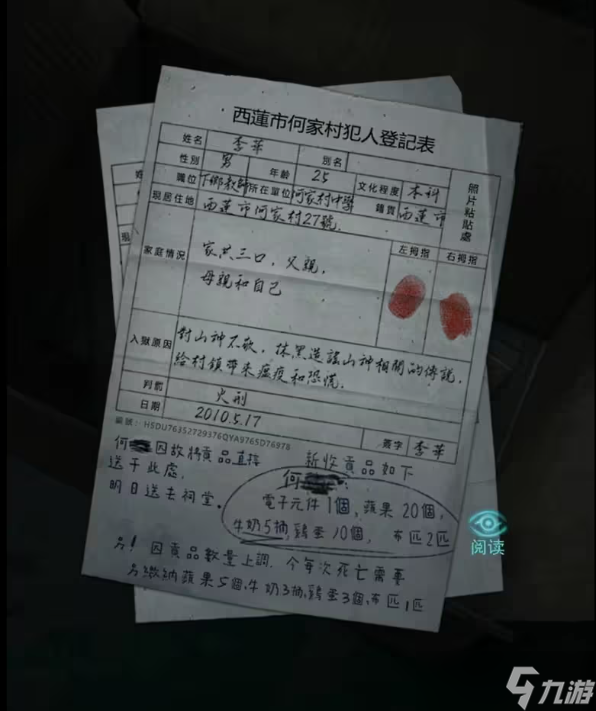 西蓮市何家村犯人登記表
姓名 李華 別名
性別 男 年齡 25 文化程度 本科
職位 下鄉教師 所在單位 何家村中學 籍貫 西蓮市
照片粘貼處
現居住地 西蓮市何家村27號.
家庭情況 家共三口,父親, 左拇指 右拇指
母親和自己
入獄原因 對山神不敬,抹黑造謠山神相關的傳說,
給村鎮帶來瘟疫和恐慌.
判罰 火刑
日期 2010.5.17
編號:HSDU76352729376QYA9765D76978 簽字 李華
何 因故將貢品直接
送于此處,
明日送去祠堂。
新收貢品如下
何
電子元件1個,蘋果20個,
牛奶5抽,雞蛋10個, 布匹2匹
另!因貢品數量上調.今每次死亡需要
另繳納蘋果5個,牛奶3抽,雞蛋3個,布匹1匹
阅读
九游